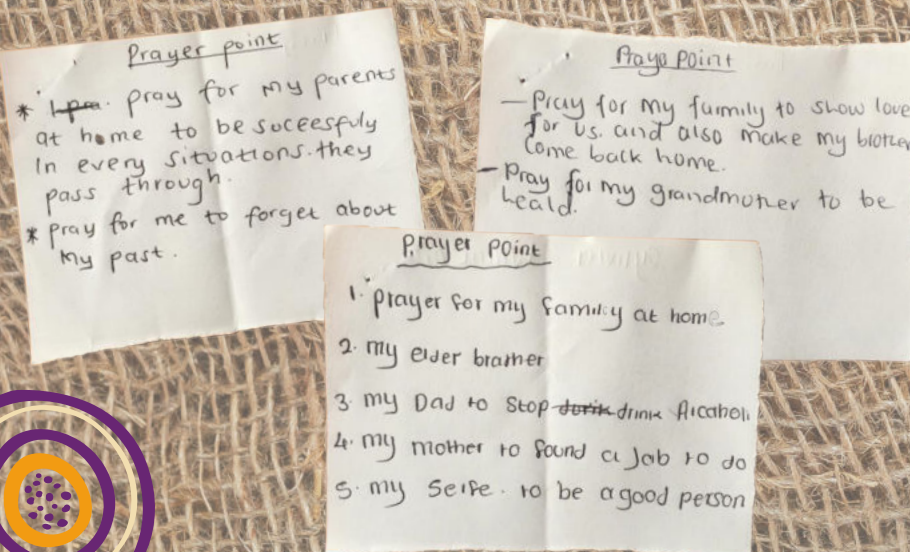 Prayer point
* pray for my parents
at home to be suceesfuly
In every situations. they
pass through.
* pray for me to forget about
my past.
Praye Point
– Pray for my farmily to show love
for us. and also make my brother
Come back home.
– Pray for my grandmother to be
heald.
Prayer Point
1. prayer for my family at home
2. my elder brather
3. my Dad to Stop drink Alcahol
4. my mother to found a Job to do
5. my Selfe. to be a good person